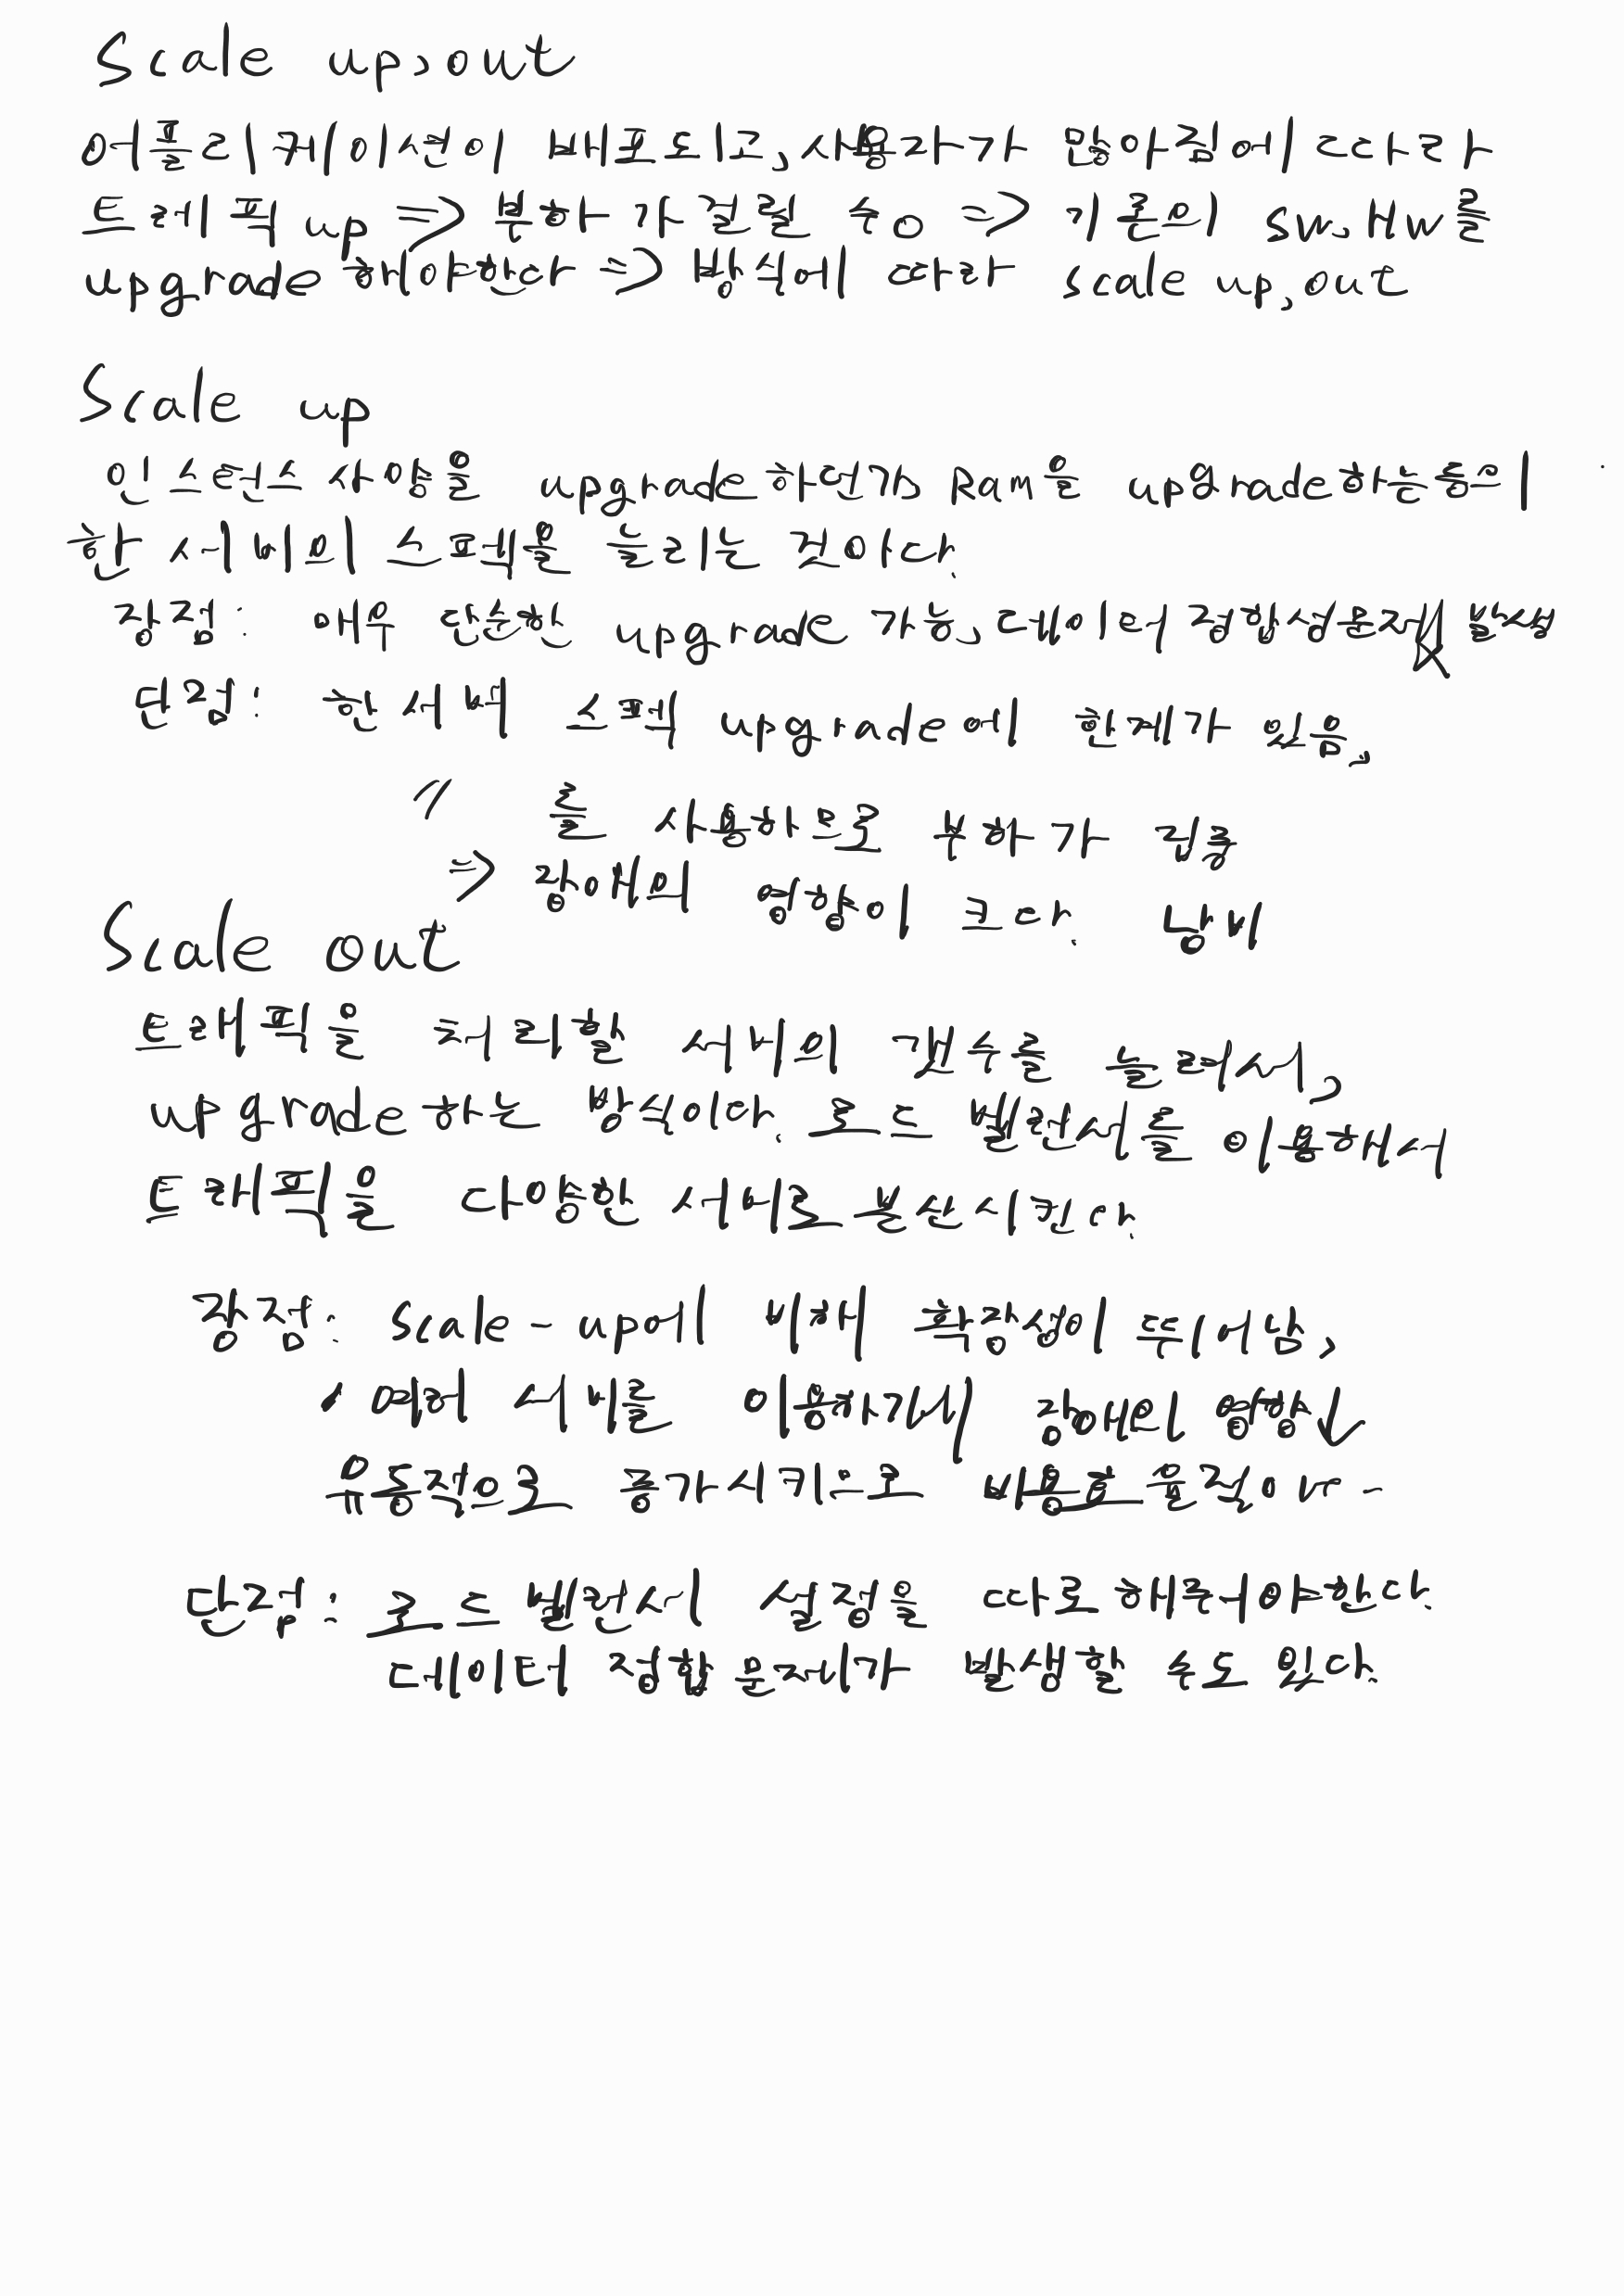 Scale up, out
어플리케이션이 배포되고, 사용자가 많아짐에 따라
트레픽 up => 부하가 걸릴 수 o => 기존의 SW, HW를
upgrade 해야한다 => 방식에 따라 scale up, out
Scale up
인스턴스 사양을 upgrade하던가, Ram을 upgrade하는 등의
한 서버의 스펙을 늘리는 것이다.
장점: 매우 단순한 upgrade 가능, 데이터 정합성 문제 X 발생
단점: 한 서버 스펙 upgrade에 한계가 있음,
〃 를 사용하므로 부하가 집중
=> 장애의 영향이 크다. 낭비
Scale out
트래픽을 처리할 서버의 갯수를 늘려서,
upgrade하는 방식이다. 로드 밸런서를 이용해서
트래픽을 다양한 서버로 분산시킨다.
장점: scale-up에 비해 확장성이 뛰어남,
여러 서버를 이용하기에 장애의 영향↓
유동적으로 증가시키므로 비용 효율적이다.
단점: 로드 밸런서 설정을 따로 해주어야한다.
데이터 정합 문제가 발생할 수도 있다.